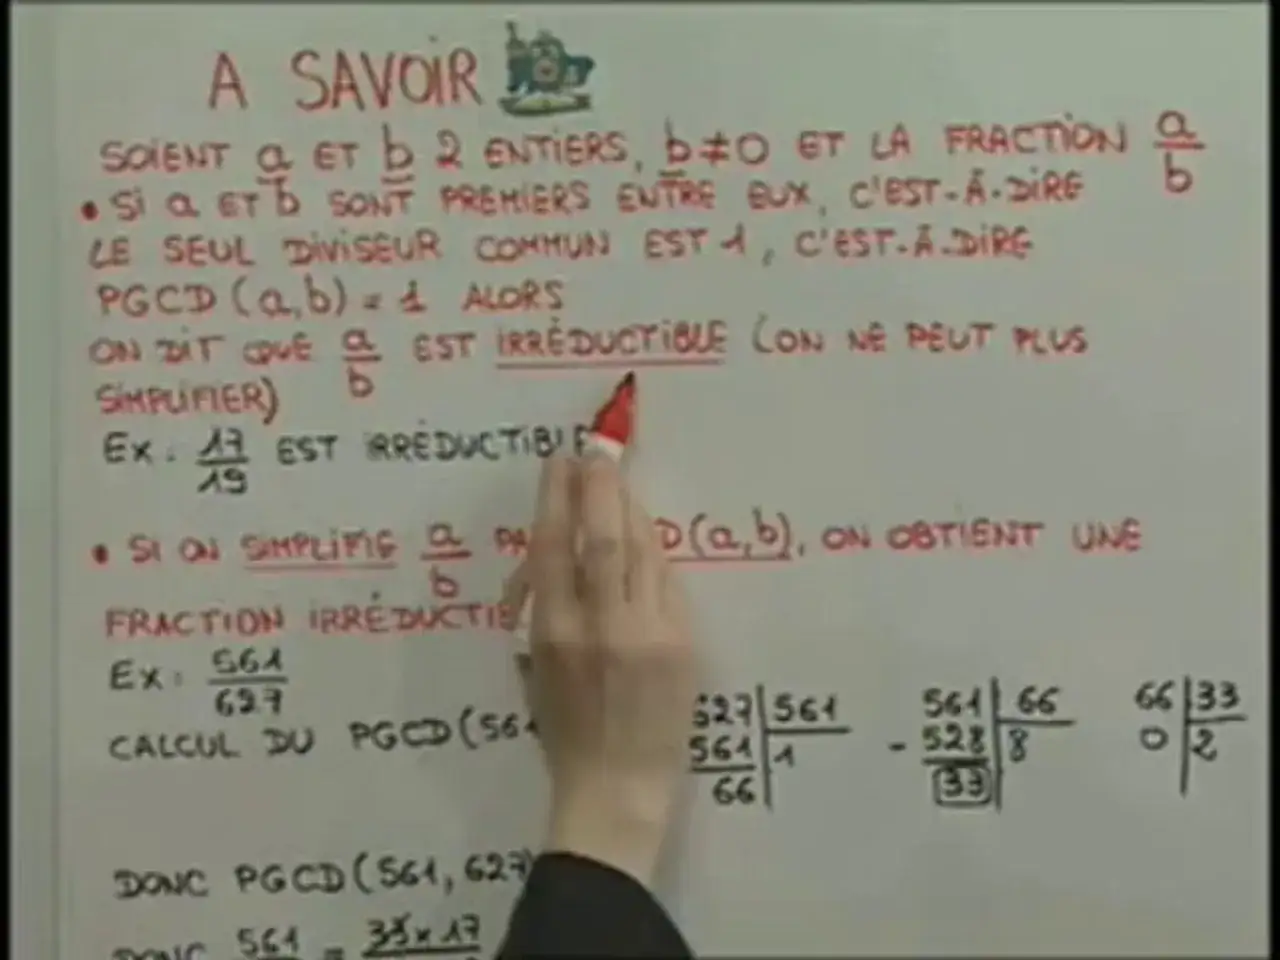 A SAVOIR
SOIENT a ET b 2 ENTIERS, b≠0 ET LA FRACTION a/b
• SI a ET b SONT PREMIERS ENTRE EUX, C'EST-À-DIRE
LE SEUL DIVISEUR COMMUN EST 1, C'EST-À-DIRE
PGCD (a,b) = 1 ALORS
ON DIT QUE a/b EST IRRÉDUCTIBLE (ON NE PEUT PLUS
SIMPLIFIER)
Ex : 17/19 EST IRRÉDUCTIBLE
• SI ON SIMPLIFIE a/b D(a,b), ON OBTIENT UNE
FRACTION IRRÉDUCTIB
Ex : 561/627
CALCUL DU PGCD(561
627 | 561
561 | 1
66
561 | 66
- 528 | 8
33
66 | 33
0 | 2
DONC PGCD(561, 627)
DONC 561 = 33 x 17